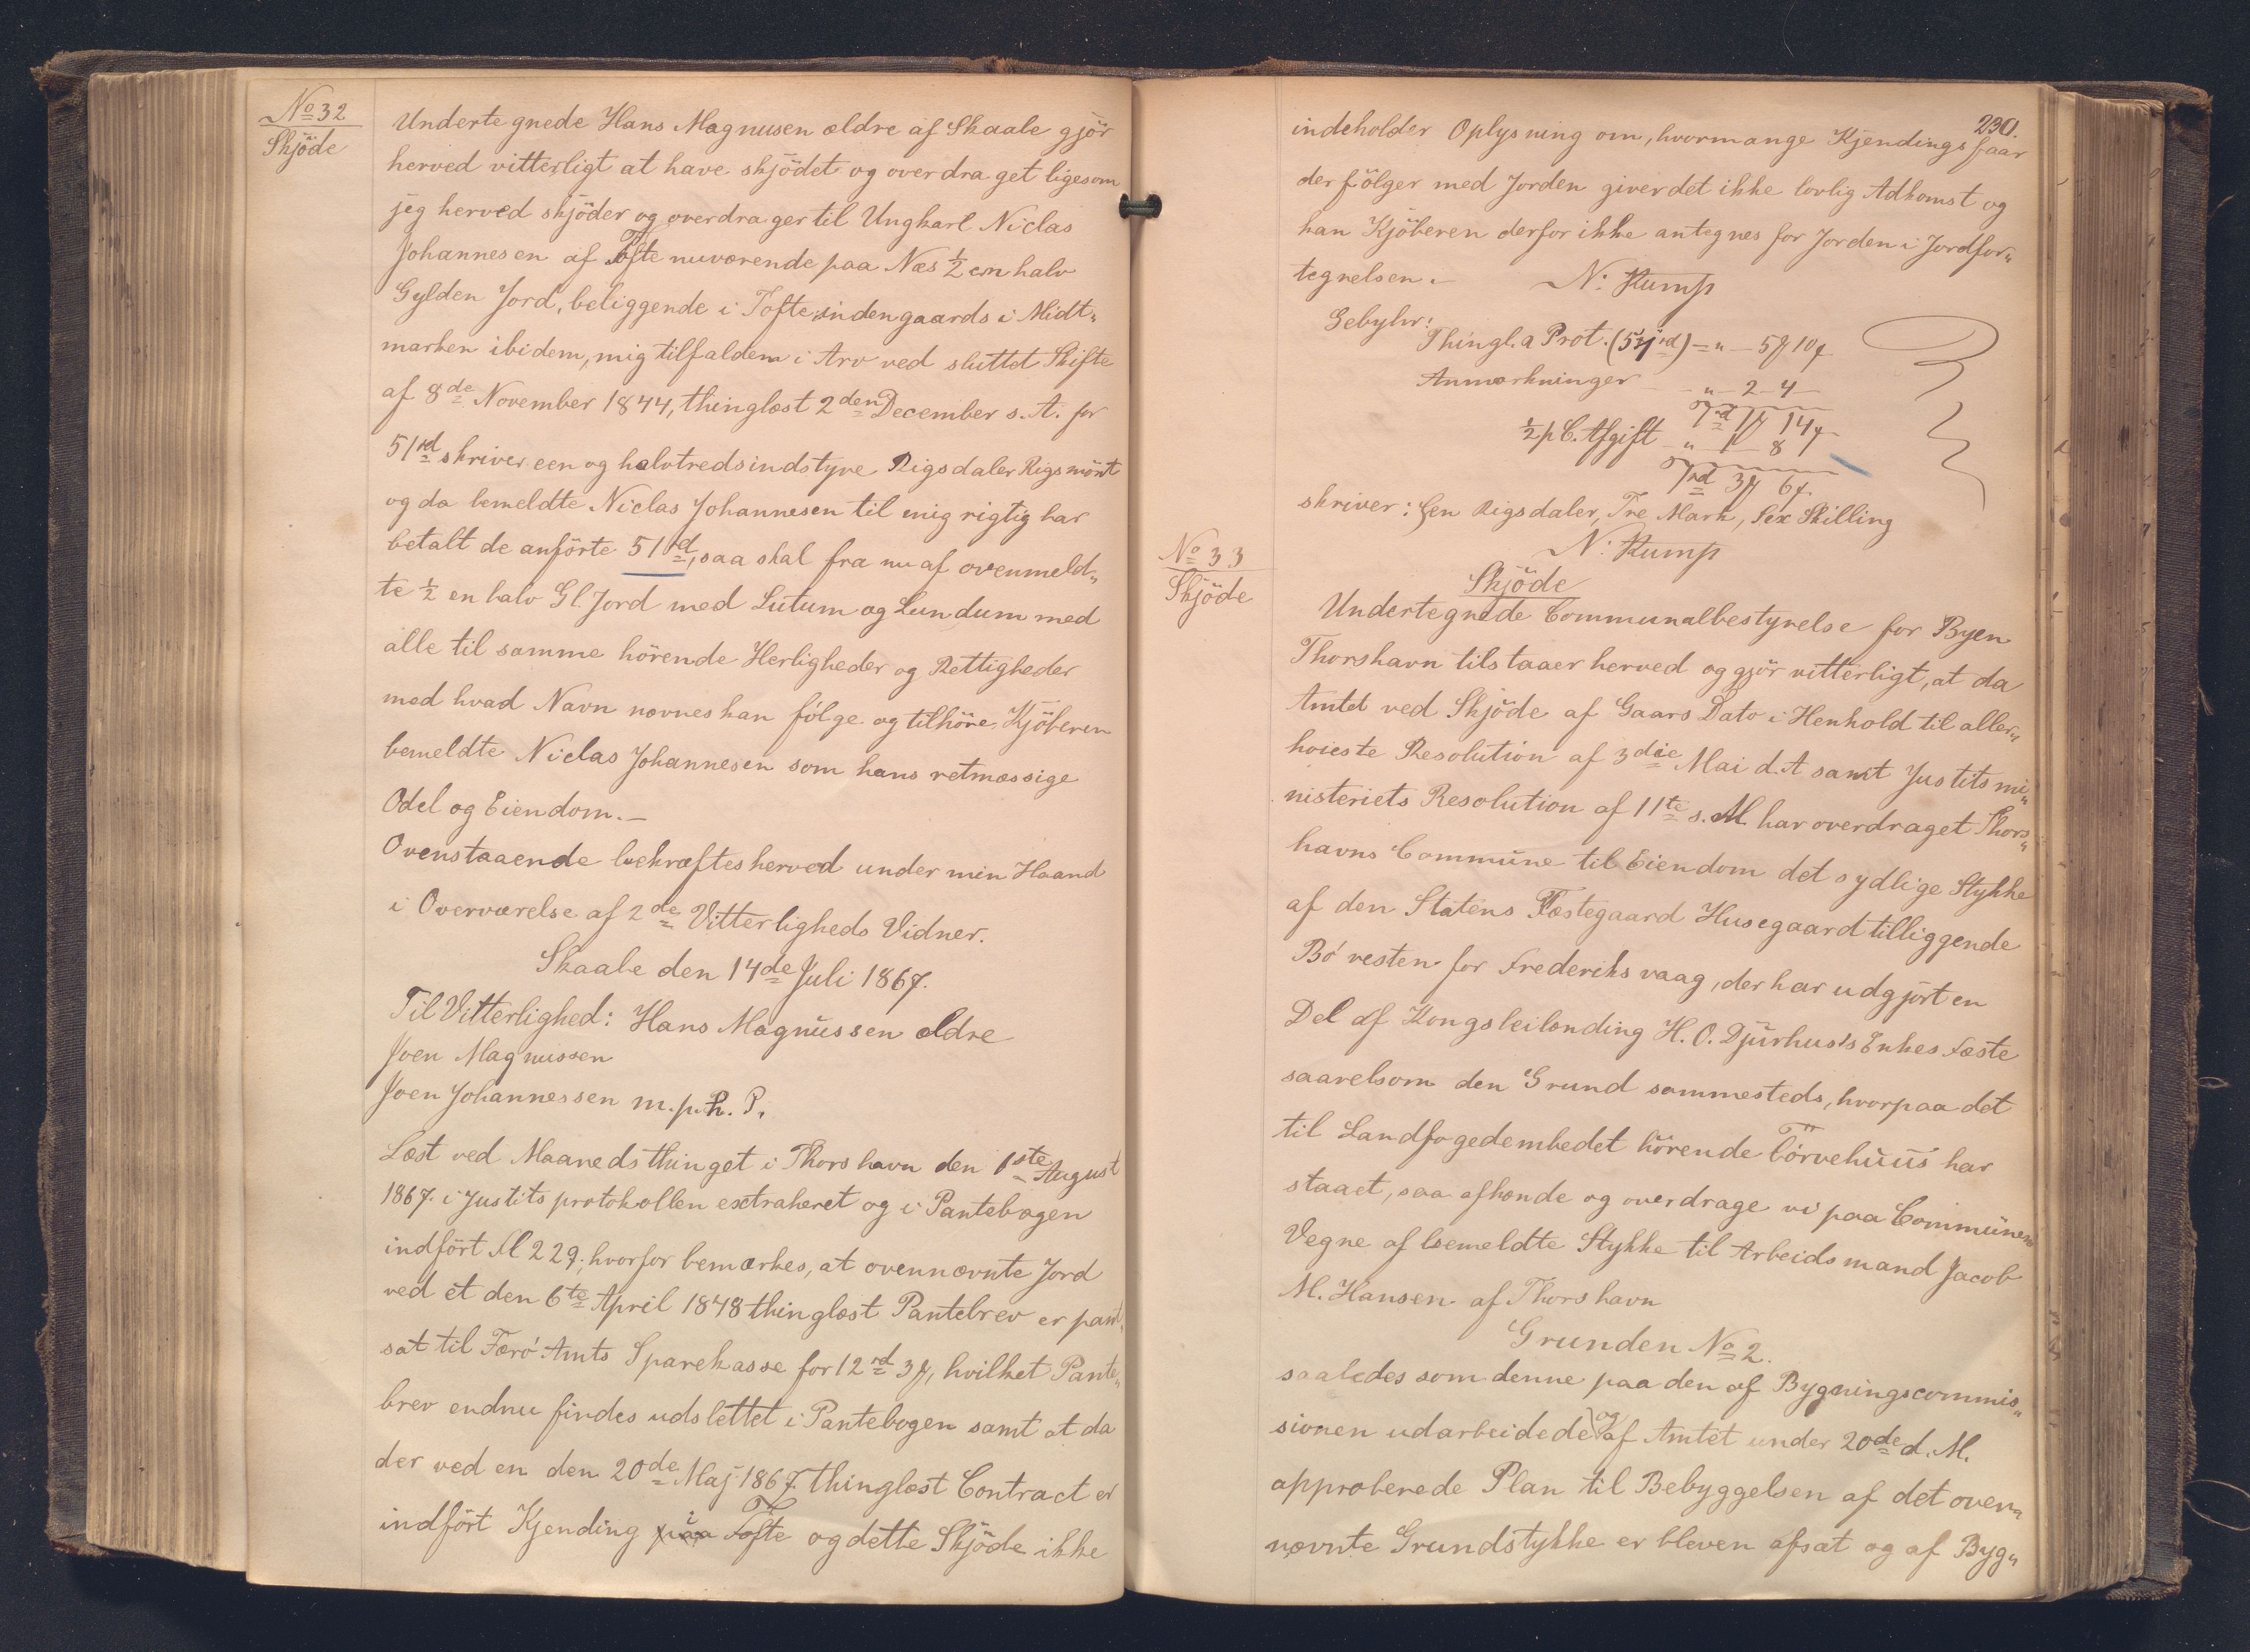 No 32
Skjöde
Undertegnede Hans Magnusen ældre af Skaale gjör
herved vitterligt at have skjödet og overdraget ligesom
jeg herved skjöder og overdrager til Ungkarl Niclas
Johannesen af Tofte nuværende paa Næs ½ en halv
Gylden Jord, beliggende i Tofte indengaards i Midt„
marken ibidem, mig tilfalden i Arv ved sluttet Skifte
af 8de November 1844, thinglæst 2den December s. A. for
51rd skriver een og halvtredsindstyve Rigsdaler Rigsmönt
og da bemeldte Niclas Johannesen til mig rigtig har
betalt de anförte 51rd, saa skal fra nu af ovenmeld„
te ½ en halv Gl. Jord med Lutum og Lundum med
alle til samme hörende Herligheder og Rettigheder
med hvad Navn nævnes kan fölge og tilhöre Kjöberen
bemeldte Niclas Johannesen som hans retmæssige
Odel og Eiendom.—
Ovenstaaende bekræftes herved under min Haand
i Overværelse af 2de Vitterligheds Vidner.
Skaale den 14de Juli 1867.
Til Vitterlighed: Hans Magnussen ældre
Joen Magnussen
Joen Johannessen m. p. h. P.
Læst ved Maanedsthinget i Thorshavn den 1ste August
1867. i Justitsprotokollen extraheret og i Pantebogen
indfört Fl 229; hvorfor bemærkes, at ovennævnte Jord
ved et den 6te April 1848 thinglæst Pantebrev er pant„
sat til Færö Amts Sparekasse for 12rd 3ꝟ, hvilket Pante„
brev endnu findes udslettet i Pantebogen samt at da
der ved en den 20de Maj 1867. thinglæst Contract er
indfört Kjending i Tofte og dette Skjöde ikke
230.
indeholder Oplysning om, hvormange Kjendingsfaar
der fölger med Jorden giver det ikke lovlig Adkomst og
kan Kjöberen derfor ikke antegnes for Jorden i Jordfor„
tegnelsen.—
N: Rump
Gebyhr:
Thingl. a Prot. (51rd) = „ — 5ꝟ 10ʃ
Anmærkninger — „ — 2 — 4 —
1rd 1ꝟ 14ʃ
½ p C. Afgift — „ 1 — 8 —
1rd 3ꝟ 6ʃ.
skriver: Een Rigsdaler, Tre Mark, Sex Skilling
N: Rump
No 33
Skjöde
Skjöde
Undertegnede Communalbestyrelse for Byen
Thorshavn tilstaaer herved og gjör vitterligt, at da
Amtet ved Skjöde af Gaars Dato i Henhold til aller„
höieste Resolution af 3die Mai d. A samt Justitsmi„
nisteriets Resolution af 11te s. M. har overdraget Thors„
havns Commune til Eiendom det sydlige Stykke
af den Statens Fæstegaard Husegaard tilliggende
Bö vesten for Frederiksvaag, der har udgjört en
Del af Kongsleilænding H. O. Djurhus's Enkes Fæste
saavelsom den Grund sammesteds, hvorpaa det
til Landfogedembedet hörende Törvehuus har
staaet, saa afhænde og overdrage vi paa Communens
Vegne af bemeldte Stykke til Arbeidsmand Jacob
M. Hansen af Thorshavn
Grunden No 2.
saaledes som denne paa den af Bygningscommis„
sionen udarbeidede og af Amtet under 20de d. M.
approberede Plan til Bebyggelsen af det oven„
nævnte Grundstykke er bleven afsat og af Byg„